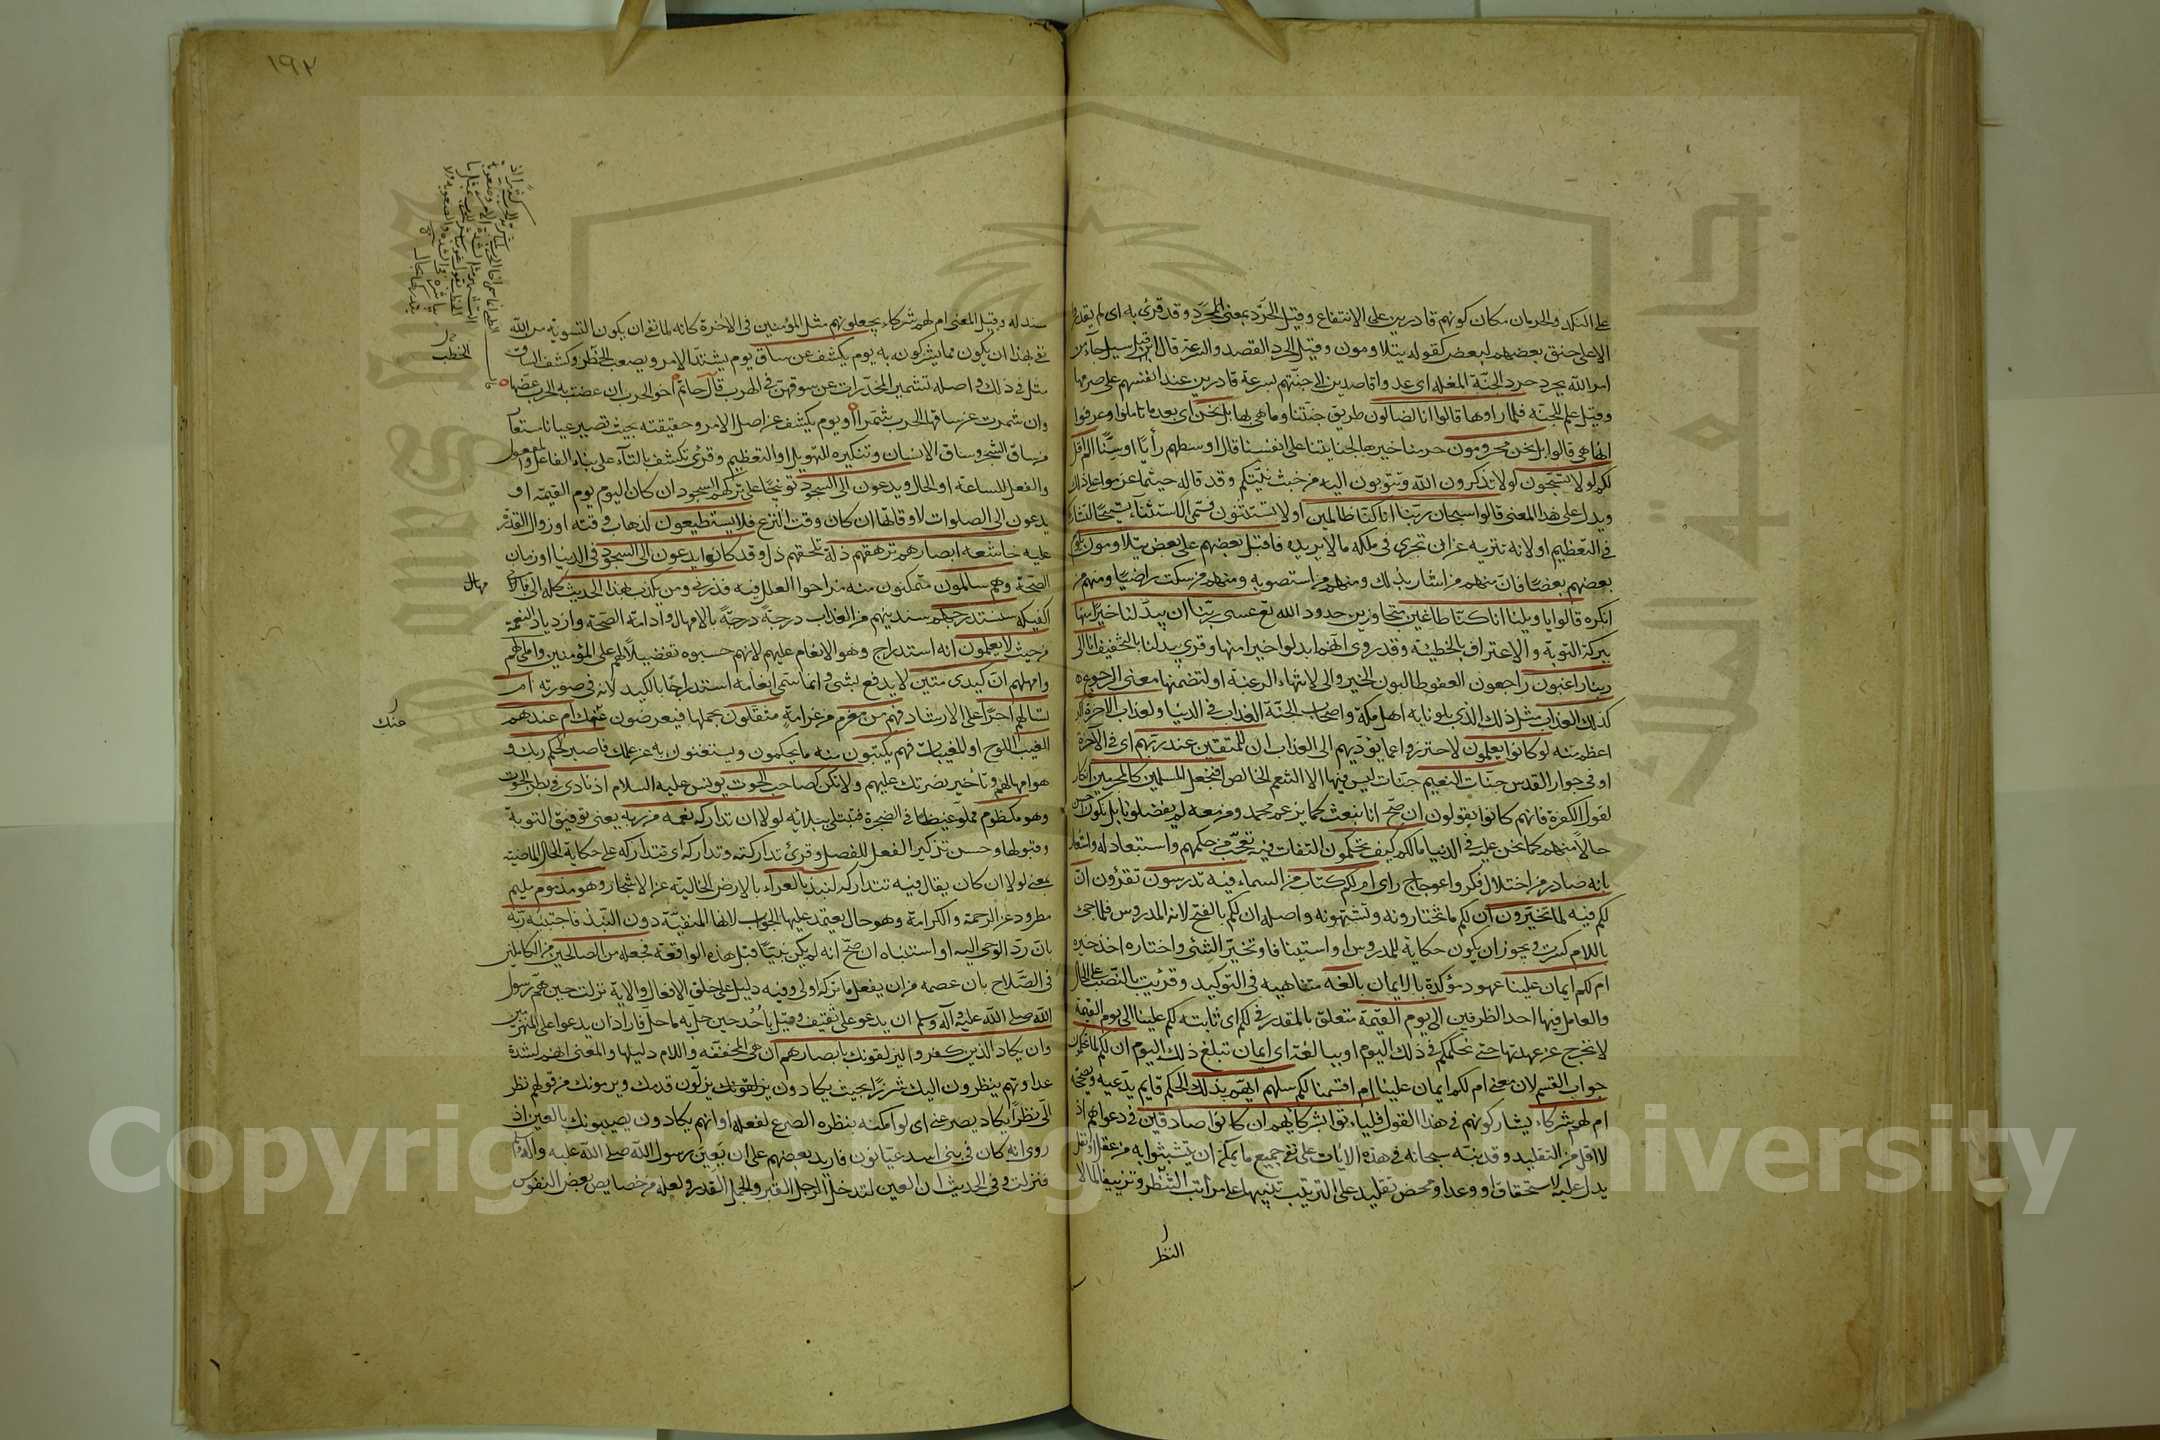 على النكد والحرمان مكان كونهم قادرين على الانتفاع وقيل الحرد بمعنى الحرد وقد قرئ به اى لم يقدروا
الا على حنق بعضهم لبعض كقوله يتلاومون وقيل الحرد القصد والسرعة قال اقبل سيل جاء من
امر الله يحرد حرد الجنة المغله اى غدوا قاصدين الى جنتهم بسرعة قادرين عند انفسهم على صرمها
وقيل علم للجنه فلما راوها قالوا انا لضالون طريق جنتنا وما هى بها بل نحن اى بعد ما تاملوا وعرفوا
انها هى قالوا بل نحن محرومون حرمنا خيرها لجنايتنا على انفسنا قال اوسطهم رأيا او سنا الم اقل
لكم لولا تسبحون لولا تذكرون الله وتتوبون اليه من خبث نيتكم وقد قاله حيثما عزموا على ذلك
ويدل على هذا المعنى قالوا سبحان ربنا انا كنا ظالمين او لا تستثنون فسمى الاستثناء تسبيحا لتشاركهما
فى التعظيم او لانه تنزيه عن ان تجرى فى ملكه ما لا يريده فاقبل بعضهم على بعض يتلاومون يلوم
بعضهم بعضا فان منهم من اشار بذلك ومنهم من استصوبه ومنهم من سكت راضيا ومنهم من
انكره قالوا يا ويلنا انا كنا طاغين متجاوزين حدود الله تع عسى ربنا ان يبدلنا خيرا منها
ببركة التوبة والاعتراف بالخطيئة وقد روى انهم ابدلوا خيرا منها وقرئ يبدلنا بالتخفيف انا الى
ربنا راغبون راجعون العفو طالبون الخير والى لانتهاء الرغبة او لتضمنها معنى الرجوع
كذلك العذاب مثل ذلك الذى بلونا به اهل مكة واصحاب الجنة العذاب فى الدنيا ولعذاب الآخرة اكبر
اعظم منه لو كانوا يعلمون لاحترزوا عما يؤديهم الى العذاب ان للمتقين عند ربهم اى فى الآخرة
او فى جوار القدس جنات النعيم جنات ليس فيها الا التنعم الخالص افنجعل المسلمين كالمجرمين انكار
لقول الكفرة فانهم كانوا يقولون ان صح انا نبعث كما يزعم محمد ومن معه لم يفضلونا بل نكون احسن
حالا منهم كما نحن عليه فى الدنيا ما لكم كيف تحكمون التفات فيه تعجب من حكمهم واستبعاد له واشعار
بانه صادر من اختلال فكر واعوجاج راى ام لكم كتاب من السماء فيه تدرسون تقرؤن ان
لكم فيه لما تخيرون ان لكم ما تختارونه وتشتهونه واصله ان لكم بالفتح لانه المدروس فلما جئ
باللام كسرت ويجوز ان يكون حكاية للمدروس او استينافا وتخير الشئ واختاره اخذ خيره
ام لكم ايمان علينا عهود مؤكدة بالايمان بالغه متناهيه فى التوكيد وقرئت بالنصب على الحال
والعامل فيها احد الظرفين الى يوم القيمة متعلق بالمقدر فى لكم اى ثابتة لكم علينا الى يوم القيمة
لا نخرج عن عهدتها حتى نحكمكم فى ذلك اليوم او ببالغة اى ايمان تبلغ ذلك اليوم ان لكم لما تحكمون
جواب القسم لان معنى ام لكم ايمان علينا ام اقسمنا لكم سلهم ايهم بذلك الحكم قايم يدعيه ويصححه
ام لهم شركاء يشاركونهم فى هذا القول فلياتوا بشركايهم ان كانوا صادقين فى دعواهم اذ
لا اقل من التقليد وقد نبه سبحانه فى هذه الايات على نفى جميع ما يمكن ان يتشبثوا به من عقل او نقل
يدل عليه لاستحقاق او وعد او محض تقليد على الترتيب تنبيها على مراتب النظر وتزييفا لما لا
النظر
١٩٢
سند له وقيل المعنى ام لهم شركاء يجعلونهم مثل المؤمنين فى الاخرة كانه لما نفى ان يكون التسوية من الله
نفى بهذا ان يكون مما يشركون به يوم يكشف عن ساق يوم يشتد الامر ويصعب الخطب وكشف الساق
مثل فى ذلك واصله تشمير المخدرات عن سوقهن فى الهرب قال حاتم اخو الحرب ان عضت به الحرب عضها
وان شمرت عن ساقها الحرب شمرا او يوم يكشف عن اصل الامر وحقيقته بحيث تصير عيانا مستعار
من ساق الشجر وساق الانسان وتنكيره للتهويل او التعظيم وقرئ تكشف بالتاء على بناء الفاعل او المفعول
والفعل للساعة او الحال ويدعون الى السجود توبيخا على تركهم السجود ان كان اليوم يوم القيمة او
يدعون الى الصلوات لاوقاتها ان كان وقت النزع فلا يستطيعون لذهاب وقته او زوال القدرة
عليه خاشعه ابصارهم ترهقهم ذلة تلحقهم ذل وقد كانوا يدعون الى السجود فى الدنيا او زمان
الصحة وهم سالمون متمكنون منه مزاحوا العلل فيه فذرنى ومن يكذب بهذا الحديث كله الى فانى
اكفيكه سنستدرجهم سندنيهم من العذاب درجة درجة بالامهال وادامة الصحة وازدياد النعمة
من حيث لا يعلمون انه استدراج وهو الانعام عليهم لانهم حسبوه تفضيلا لهم على المؤمنين واملى لهم
وامهلهم ان كيدى متين لا يدفع بشئ وانما سمى انعامه استدراجا بالكيد لانه فى صورته ام
تسالهم اجرا على الارشاد فهم من مغرم من غرامة مثقلون بحملها فيعرضون عنك ام عندهم
الغيب اللوح او المغيبات فهم يكتبون منه ما يحكمون ويستغنون به عن علمك فاصبر لحكم ربك و
هو امهالهم وتاخير نصرتك عليهم ولا تكن كصاحب الحوت يونس عليه السلام اذ نادى فى بطن الحوت
وهو مكظوم مملو غيظا فى الضجرة فتبتلى ببلائه لولا ان تداركه نعمه من ربه يعنى توفيق التوبة
وقبولها وحسن تذكير الفعل للفصل وقرئ تداركته وتداركه اى تتداركه على حكاية الحال الماضية
بمعنى لولا ان كان يقال فيه تتداركه لنبذ بالعراء بالارض الخالية عن الاشجار وهو مذموم مليم
مطرود عن الرحمة والكرامة وهو حال يعتمد عليها الجواب لانها المنفية دون النبذ فاجتبيه ربه
بان رد الوحى اليه او استنباه ان صح انه لم يكن نبيا قبل هذه الواقعة فجعله من الصالحين من الكاملين
فى الصلاح بان عصمه من ان يفعل ما تركه اولى وفيه دليل على خلق الافعال والاية نزلت حين هم رسول
الله صلى الله عليه وآله وسلم ان يدعو على ثقيف وقيل باحد حين حل به ما حل فاراد ان يدعوا على المنهزمين
وان يكاد الذين كفروا ليزلقونك بابصارهم ان هى المخففه واللام دليلها والمعنى انهم لشدة
عداوتهم ينظرون اليك شزرا بحيث يكادون يزلقونك يزلون قدمك ويرمونك من قولهم نظر
الى نظرا يكاد يصرعنى اى لو امكنه بنظره الصرع لفعله او انهم يكادون يصيبونك بالعين اذ
روى انه كان فى بنى اسد عيانون فاريد بعضهم على ان يعين رسول الله صلى الله عليه وآله
فنزلت وفى الحديث ان العين لتدخل الرجل القبر والجمل القدر ولعله من خصايص بعض النفوس
الخطب
عنك
Copyright © King Saud University
جامعة الملك سعود